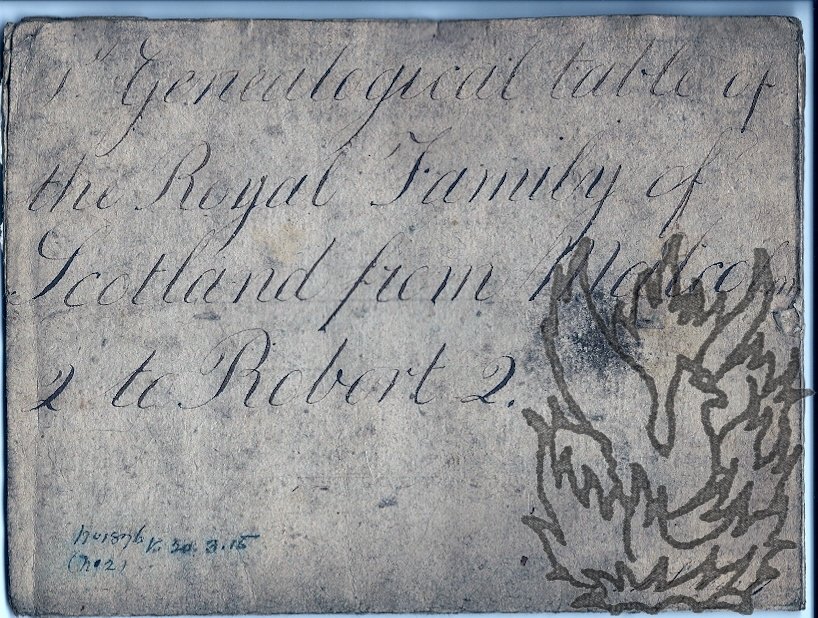 1st Genealogical table of
the Royal Family of
Scotland from Malcolm
2 to Robert 2.
K. 30. 3. 15
(No 2)